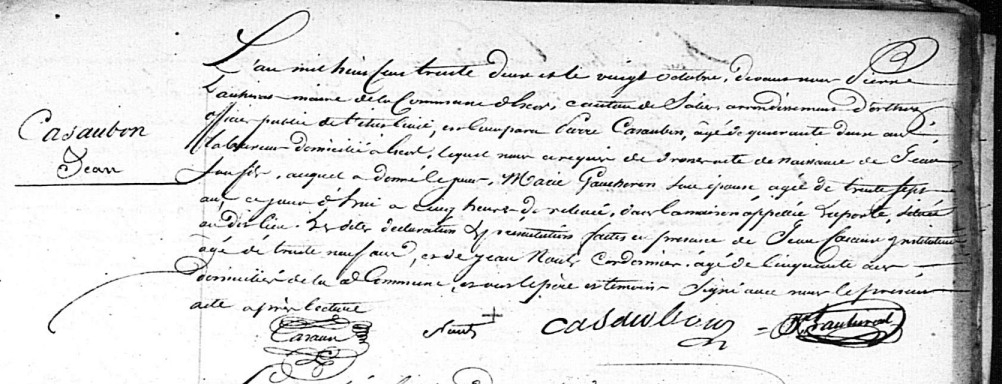 L'an mil huit cent trente deux et le vingt octobre, devant nous Pierre
maire de la Commune d' canton de Salies arrondissement d'orthez
officier public de l'etat Civil, est Comparu Pierre Casaubon, âgé de quarante deux ans
laboureur domicilié à lequel nous a requis de acte de naissance de Jean
Casaubon
Jean
son fils, auquel a donné le jour, Marie son épouse agée de trente sept
ans ce jour d'hui a cinq heures de relevée, dans la maison appellée Laporte, située
au dit lieu. Les dites déclaration & présentation faites en presence de Jean instituteur
agé de trente neuf ans, et de Jean Nauts Cordonnier agé de Cinquante ans
domiciliés de la d Commune, et ont le père et temoins Signé avec nous le present
acte après lecture
Nauts casaubon